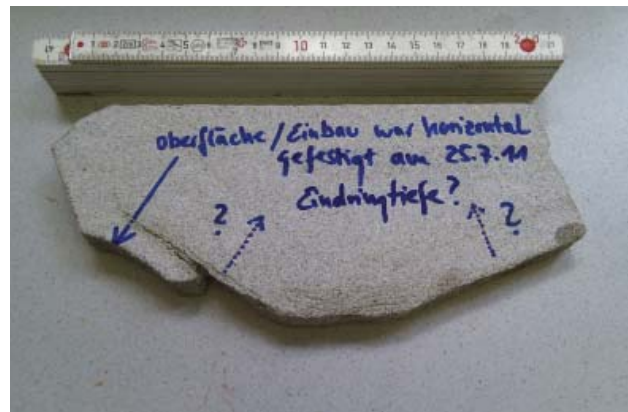 1 2 3 4 5 6 7 8 9 10 11 12 13 14 15 16 17 18 19
oberfläche / Einbau war horizontal
gefestigt am 25.7.11
Eindringtiefe?
? ?